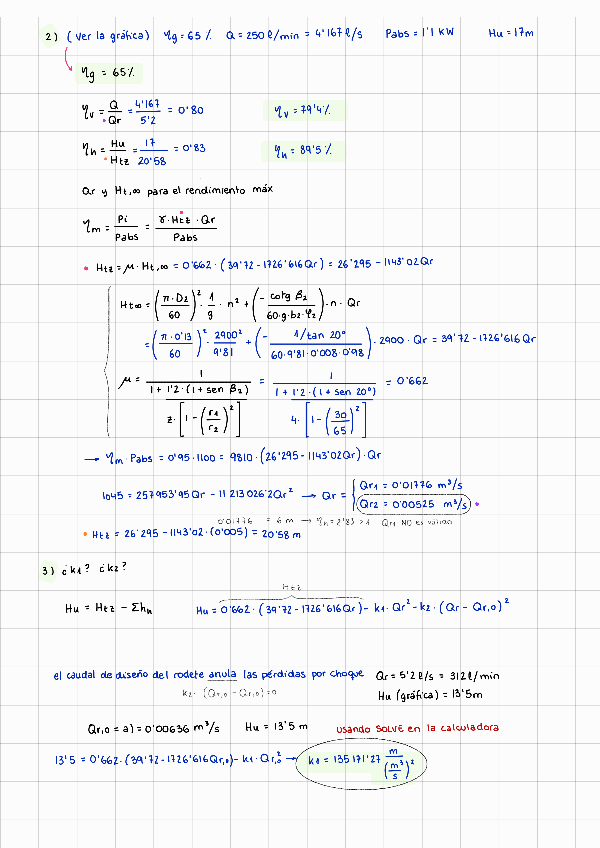 2) (ver la gráfica) ηg = 65 % Q = 250 ℓ/min = 4'167 ℓ/s Pabs = 1'1 KW Hu = 17m
ηg = 65%
ηv = Q/Qr = 4'167/5'2 = 0'80 ηv = 79'4%
ηh = Hu/Htz = 17/20'58 = 0'83 ηh = 89'5%
Qr y Ht,∞ para el rendimiento máx
ηm = Pi/Pabs = γ·Htz·Qr/Pabs
• Htz = μ·Ht,∞ = 0'662·(39'72 - 1726'616Qr) = 26'295 - 1143'02Qr
Ht∞ = (π·D2/60)²·1/g·n² + (-cotg β2/60·g·b2·φ2)·n·Qr
= (π·0'13/60)²·2900²/9'81 + (-1/tan 20°/60·9'81·0'008·0'98)·2900·Qr = 39'72 - 1726'616Qr
μ = 1/1 + 1'2·(1 + sen β2)/z·[1 - (r1/r2)²] = 1/1 + 1'2·(1 + sen 20°)/4·[1 - (30/65)²] = 0'662
→ ηm·Pabs = 0'95·1100 = 9810·(26'295 - 1143'02Qr)·Qr
1045 = 257953'95Qr - 11213026'2Qr² → Qr = { Qr1 = 0'01776 m³/s
Qr2 = 0'00525 m³/s •
0'01776 = 6 m → ηh = 2'83 > 1 Qr1 NO es válido
• Htz = 26'295 - 1143'02·(0'005) = 20'58 m
3) ¿k1? ¿k2?
Htz
Hu = Htz - Σhh Hu = 0'662·(39'72 - 1726'616Qr) - k1·Qr² - k2·(Qr - Qr,0)²
el caudal de diseño del rodete anula las pérdidas por choque Qr = 5'2 ℓ/s = 312 ℓ/min
k2·(Qr,0 - Qr,0) = 0 Hu (gráfica) = 13'5m
Qr,0 = a) = 0'00636 m³/s Hu = 13'5 m usando SOLVE en la calculadora
13'5 = 0'662·(39'72 - 1726'616Qr,0) - k1·Qr,0² → k1 = 135171'27 m/(m³/s)²